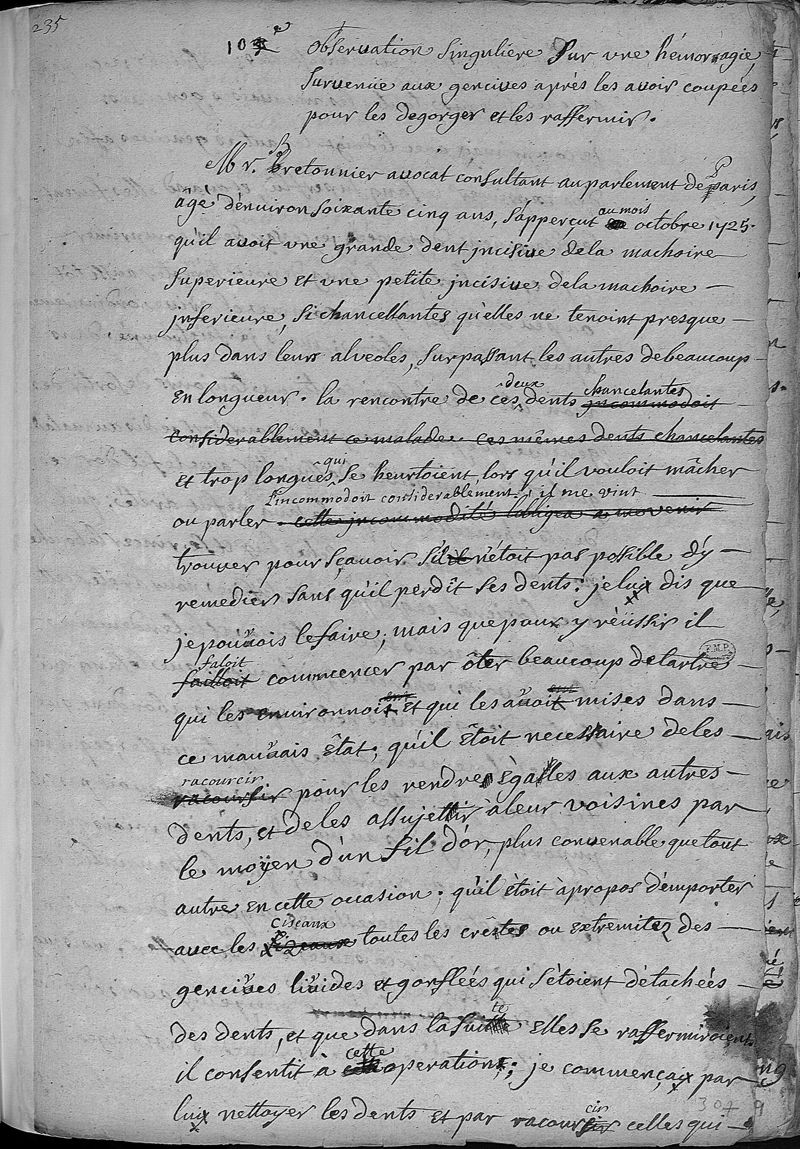 235
10e observation singuliere sur vne hémorragie,
survenüe aux gencives après les avoir coupées
pour les degorger et les raffermir.
Mr. Bretonnier avocat consultant au parlement de Paris,
âgé d'environ soixante cinq ans, s'apperçut au mois octobre 1725.
qu'il avoit vne grande dent jncisive dela machoire
superieure et vne petite jncisive dela machoire
jnferieure, si chancellantes qu'elles ne tenoint presque
plus dans leurs alveoles, surpassant les autres debeaucoup
en longueur. la rencontre de ces deux dents chancelantes jncommodoit
considerablement ce malade. ces mêmes dents chancelantes
et trop longuês qui se heurtoient, lors qu'il vouloit mâcher
l'incommôdoit considerablement. il me vint
ou parler. cette jncommodité l'obligea a me venir
trouver pour sçavoir s'il il n'étoit pas possible d'y
remedier sans qu'il perdît ses dents: je luy dis que
je pouvois le faire, mais que pour y réüssir il
faloit
failloit commencer par ôter beaucoup de tartre
qui les environnoit ent et qui les avoit ent mises dans
ce mauvais êtat; qu'il êtoit necessaire de les
racourcir
racoursir pour les rendre êgalles aux autres
dents, et de les assujettir à leur voisines par
le moÿen d'un fil d'or, plus convenable que tout
autre en cette occasion; qu'il ètoit à propos d'emporter
ciseaux
avec les sizeaux toutes les crêstes ou extremitez des
gencives livides et gonflées qui s'étoient détachées
des dents, et que dans la suitte te elles se raffermiroient.
il consentit à cette operation; je commençay par
luy nettoyer les dents et par racoursir cir celles qui
307 9